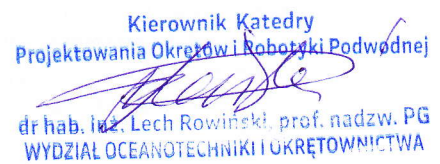 Kierownik Katedry
Projektowania Okrętów i Robotyki Podwodnej
dr hab. inż. Lech Rowiński, prof. nadzw. PG
WYDZIAŁ OCEANOTECHNIKI I OKRĘTOWNICTWA